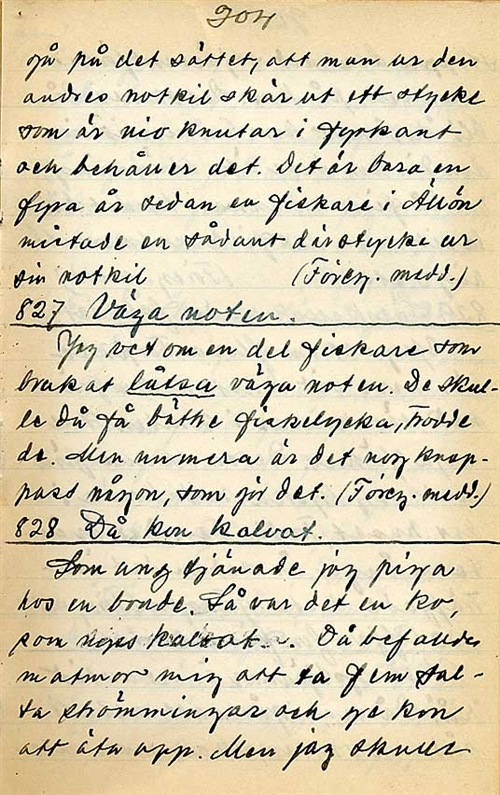 204
gå på det sättet, att man ur den
andres notkil skär ut ett stycke
som är nio knutar i fyrkant
och behåller det. Det är bara en
fyra år sedan en fiskare i
mistade en sådant där stycke ur
sin notkil (Föreg. medd.)
827 Väga noten.
Jag vet om en del fiskare som
brukat låtsa väga noten. De skul-
le då få bättre fiskelycka, trodde
de. Men numera är det nog knap-
past någon, som gör det. (Föreg. medd.)
828 Då kon kalvat.
Som ung tjänade jag piga
hos en bonde. Så var det en ko,
som kalvat. Då befallde
matmor mig att ta fem sal-
ta strömmingar och ge kon
att äta opp. Men jag skulle